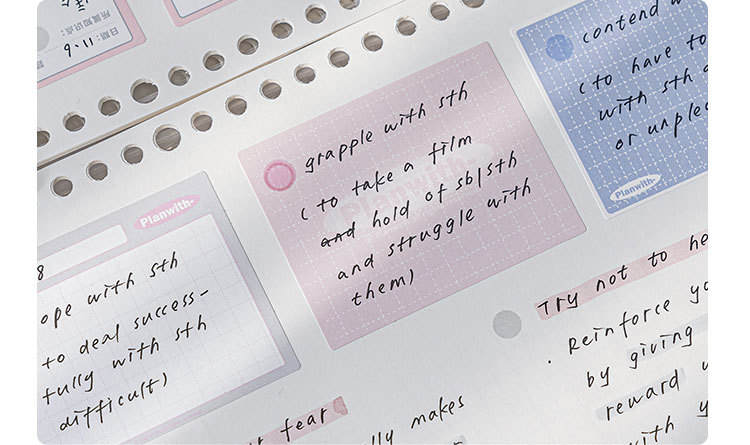 所属知识点:
日期: 11.6
Planwith-
8
ope with sth
to deal success-
fully with sth
difficult)
grapple with sth
(to take a film
and hold of sb/sth
and struggle with
them)
contend w
(to have to
with sth
or unple
Planwith-
t fear
lly makes
Try not to he
. Reinforce yo
by giving
reward
with y